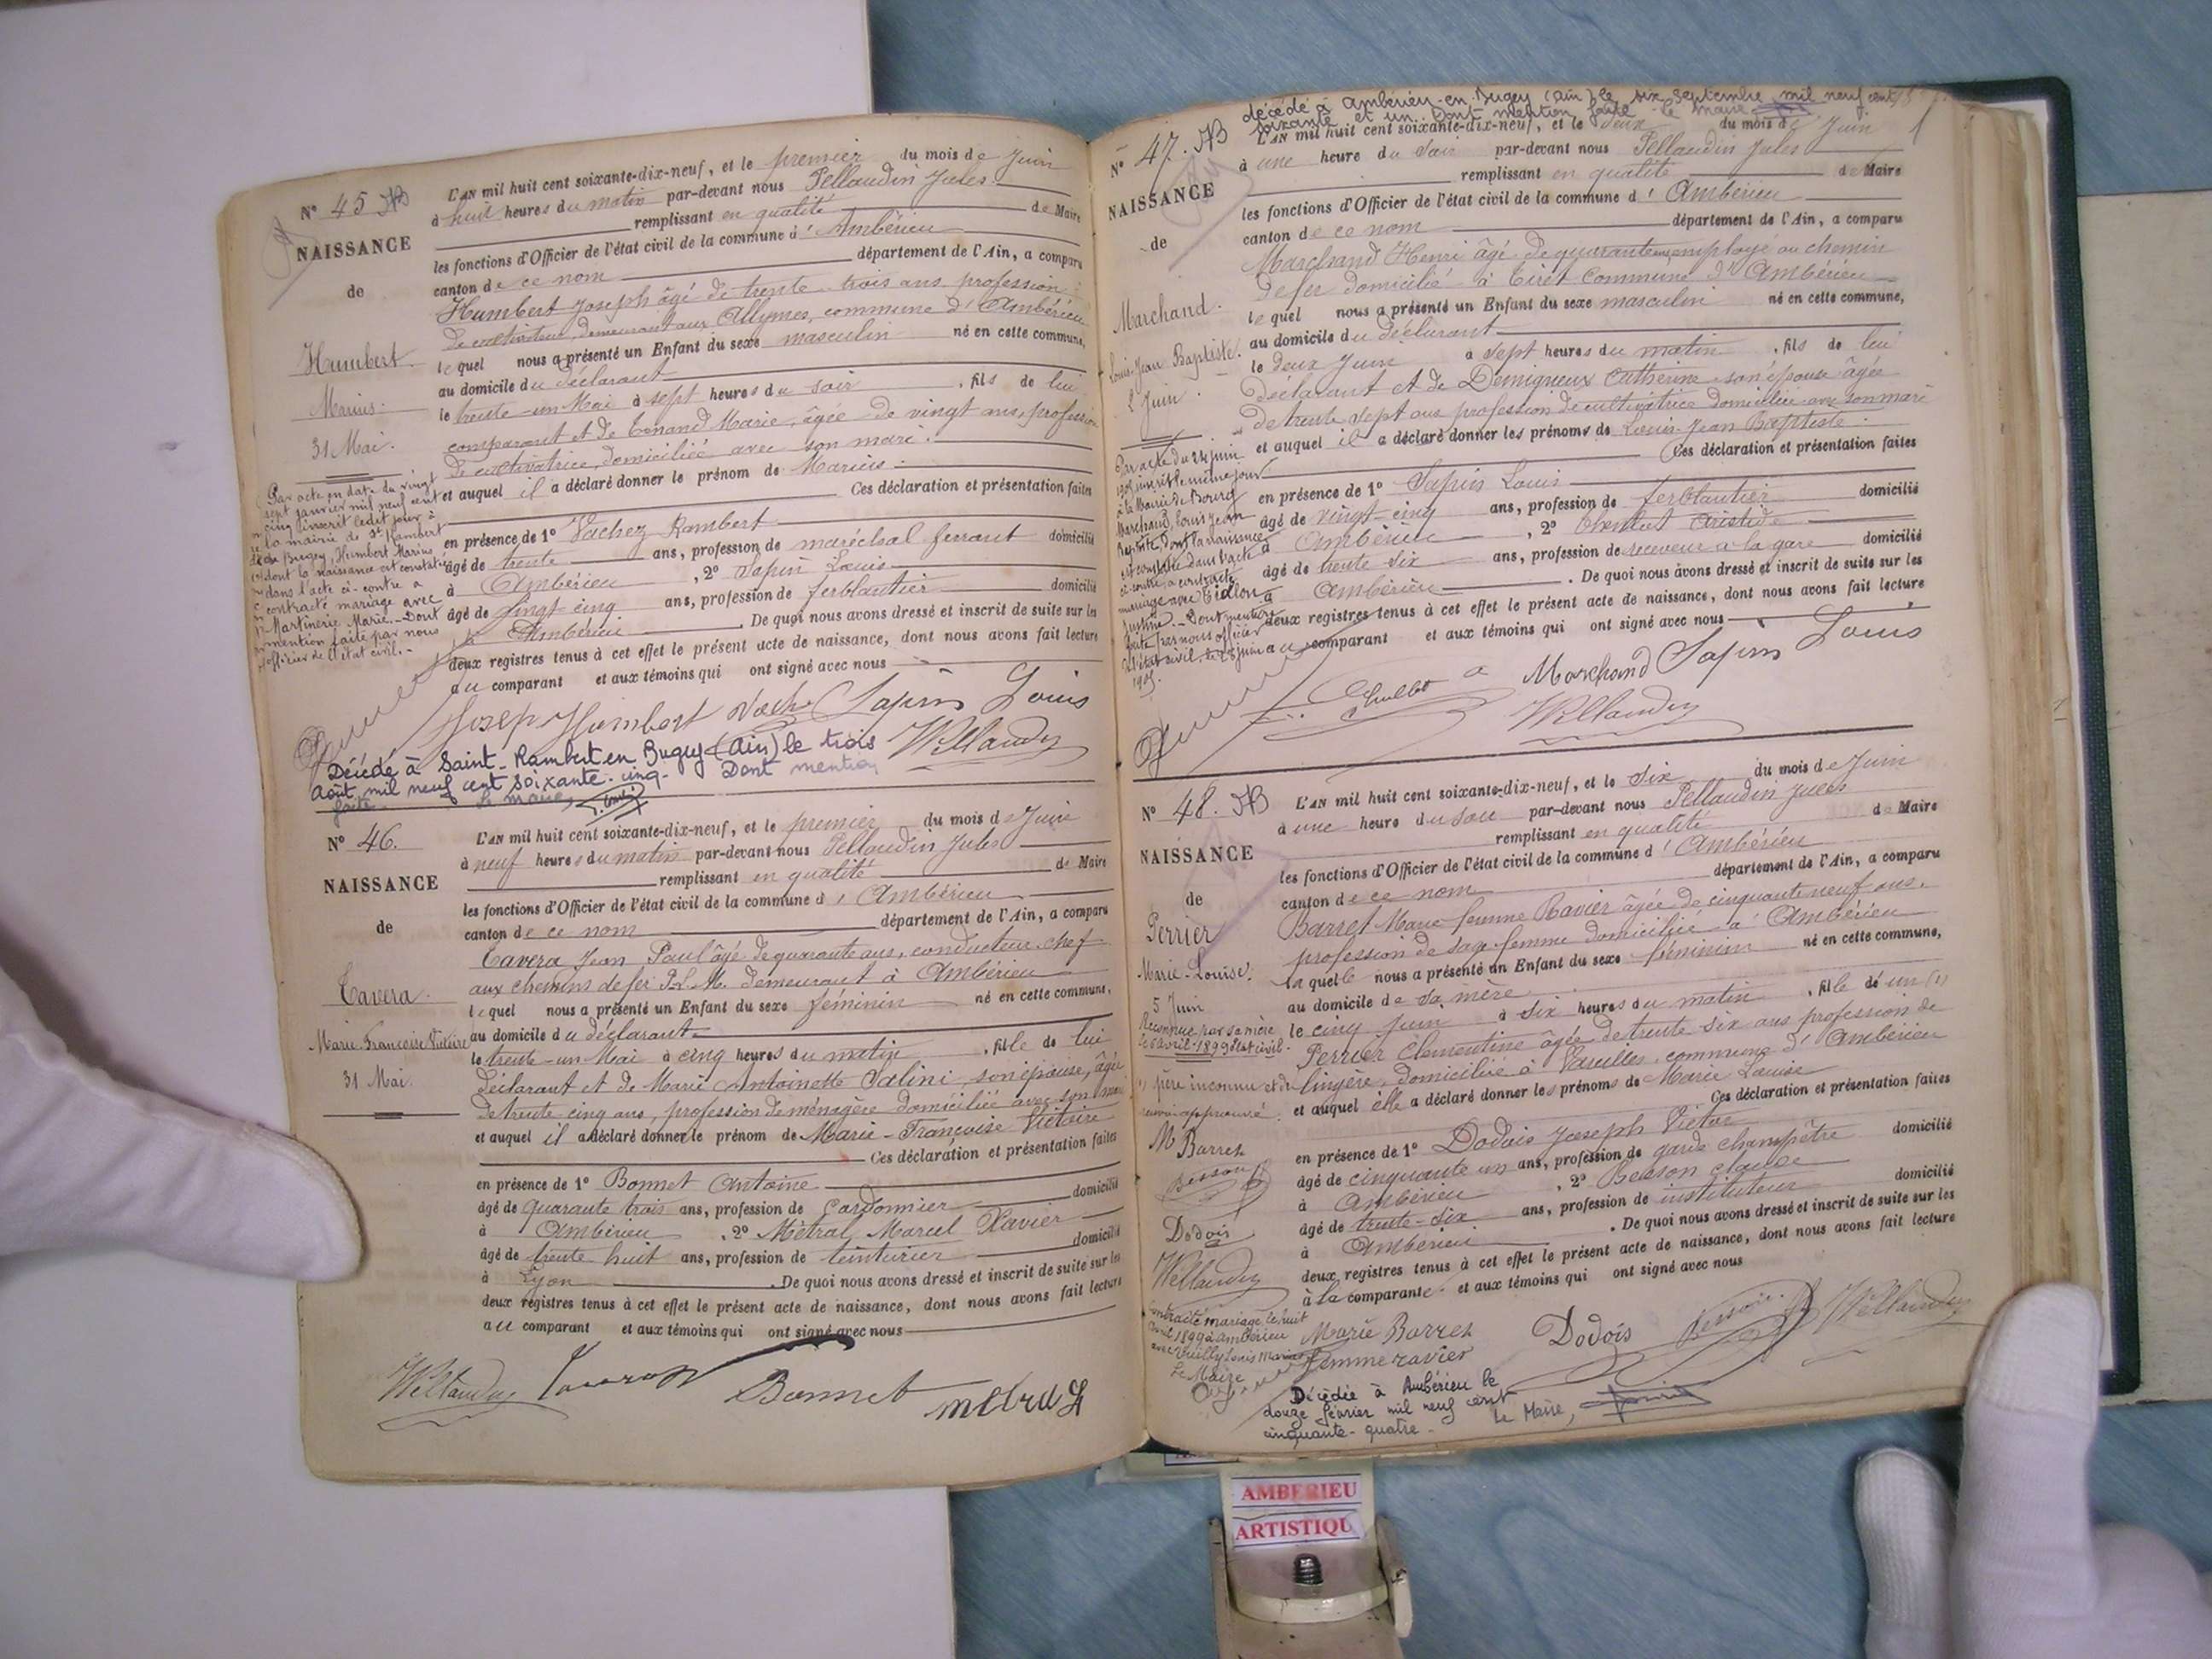 N° 45
NAISSANCE
de
Humbert
Marius
31 Mai.
L'AN mil huit cent soixante-dix-neuf, et le premier du mois de Juin
à huit heures du matin par-devant nous Pellaudin Jules
remplissant en qualité de Maire
les fonctions d'Officier de l'état civil de la commune d'Ambérieu
canton de ce nom département de l'Ain, a comparu
Humbert Joseph âgé de trente trois ans, profession
de cultivateur, demeurant aux Allymes, commune d'Ambérieu
lequel nous a présenté un Enfant du sexe masculin né en cette commune,
au domicile du déclarant
le trente-un Mai à sept heures du soir, fils de lui
comparant et de Marie, âgée de vingt ans, profession
de cultivatrice, domiciliée avec son mari.
et auquel il a déclaré donner le prénom de Marius
Ces déclaration et présentation faites
en présence de 1° Vachez Rambert
âgé de trente ans, profession de maréchal ferrant domicilié
à Ambérieu, 2° Sapin Louis
âgé de vingt cinq ans, profession de ferblantier domicilié
à Ambérieu. De quoi nous avons dressé et inscrit de suite sur les
deux registres tenus à cet effet le présent acte de naissance, dont nous avons fait lecture
au comparant et aux témoins qui ont signé avec nous
Par acte en date du vingt
sept janvier mil neuf cent
cinq inscrit ledit jour à
la mairie de St Rambert
en Bugey, Humbert Marius
dont la naissance est constatée
dans l'acte ci-contre a
contracté mariage avec
Martinerie Marie. Dont
mention faite par nous
officier de l'état civil.
Josep Humbert Sapin Louis
Pellaudin
Décédé à Saint-Rambert en Bugey (Ain) le trois
Août mil neuf cent soixante-cinq. Dont mention
faite le maire,
N° 46.
NAISSANCE
de
Tavera
Marie Françoise Victoire
31 Mai
L'AN mil huit cent soixante-dix-neuf, et le premier du mois de Juin
à neuf heures du matin par-devant nous Pellaudin Jules
remplissant en qualité de Maire
les fonctions d'Officier de l'état civil de la commune d'Ambérieu
canton de ce nom département de l'Ain, a comparu
Tavera Jean Paul âgé de quarante ans, conducteur chef
aux chemins de fer P.L.M. demeurant à Ambérieu
lequel nous a présenté un Enfant du sexe féminin né en cette commune,
au domicile du déclarant
le trente-un Mai à cinq heures du matin, fille de lui
déclarant et de Marie Antoinette Salini, son épouse, âgée
de trente cinq ans, profession de ménagère domiciliée avec son mari
et auquel il a déclaré donner le prénom de Marie-Françoise Victoire
Ces déclaration et présentation faites
en présence de 1° Bonnet Antoine
âgé de quarante trois ans, profession de cordonnier domicilié
à Ambérieu, 2° Métral Marcel Xavier
âgé de trente huit ans, profession de teinturier domicilié
à Lyon. De quoi nous avons dressé et inscrit de suite sur les
deux registres tenus à cet effet le présent acte de naissance, dont nous avons fait lecture
au comparant et aux témoins qui ont signé avec nous
Pellaudin Bonnet
décédé à Ambérieu-en-Bugey (Ain) le six septembre mil neuf cent
soixante et un. Dont mention faite le maire
N° 47.
NAISSANCE
de
Marchand
Louis Jean Baptiste
2 Juin
L'AN mil huit cent soixante-dix-neuf, et le deux du mois de Juin
à une heure du soir par-devant nous Pellaudin Jules
remplissant en qualité de Maire
les fonctions d'Officier de l'état civil de la commune d'Ambérieu
canton de ce nom département de l'Ain, a comparu
Marchand Henri âgé de quarante employé au chemin
de fer domicilié à Tiret Commune d'Ambérieu
lequel nous a présenté un Enfant du sexe masculin né en cette commune,
au domicile du déclarant
le deux Juin à sept heures du matin, fils de lui
déclarant et de Demigneux Catherine son épouse âgée
de trente sept ans profession de cultivatrice domiciliée avec son mari
et auquel il a déclaré donner les prénoms de Louis Jean Baptiste
Ces déclaration et présentation faites
en présence de 1° Sapin Louis
âgé de vingt-cinq ans, profession de ferblantier domicilié
à Ambérieu, 2° Aristide
âgé de trente six ans, profession de receveur à la gare domicilié
à Ambérieu. De quoi nous avons dressé et inscrit de suite sur les
deux registres tenus à cet effet le présent acte de naissance, dont nous avons fait lecture
au comparant et aux témoins qui ont signé avec nous
Par acte du 24 juin
inscrit le même jour
à la Mairie de Bourg
Marchand, Louis Jean
Baptiste, dont la naissance
est constatée dans l'acte
ci-contre, a contracté
mariage avec
Justine. Dont mention
faite par nous officier
de l'état civil
Marchand Sapin Louis
Pellaudin
N° 48.
NAISSANCE
de
Perrier
Marie-Louise
5 Juin
Reconnue par sa mère
L'AN mil huit cent soixante-dix-neuf, et le six du mois de Juin
à une heure du soir par-devant nous Pellaudin Jules
remplissant en qualité de Maire
les fonctions d'Officier de l'état civil de la commune d'Ambérieu
canton de ce nom département de l'Ain, a comparu
Barret Marie femme Ravier âgée de cinquante neuf ans,
profession de sage-femme domiciliée à Ambérieu
laquelle nous a présenté un Enfant du sexe féminin né en cette commune,
au domicile de sa mère
le cinq Juin à six heures du matin, fille de un (1)
Perrier Clémentine âgée de trente six ans profession de
lingère, domiciliée à Vareilles commune d'Ambérieu
et auquel elle a déclaré donner les prénoms de Marie Louise
Ces déclaration et présentation faites
en présence de 1° Dodois Joseph Victor
âgé de cinquante un ans, profession de garde champêtre domicilié
à Ambérieu, 2° Besson Claude
âgé de trente-six ans, profession de instituteur domicilié
à Ambérieu. De quoi nous avons dressé et inscrit de suite sur les
deux registres tenus à cet effet le présent acte de naissance, dont nous avons fait lecture
à la comparante et aux témoins qui ont signé avec nous
(1) père inconnu et de
renvoi approuvé
M Barret
Besson
Dodois
Pellaudin
contracté mariage le huit
avril 1899 à Ambérieu
avec Vuilly Louis Marius
Le Maire
Marie Barret Dodois Besson Pellaudin
femme ravier
Décédée à Ambérieu le
douze février mil neuf cent
cinquante-quatre. Le Maire,
AMBERIEU
ARTISTIQU